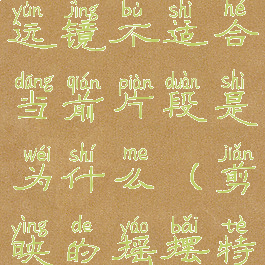 yùn jìng bù shì hé
运镜不适合
dāng qián piàn duàn shì
当前片段是
wéi shí me jiǎn
为什么（剪
yìng de yáo bǎi tè
映的摇摆特